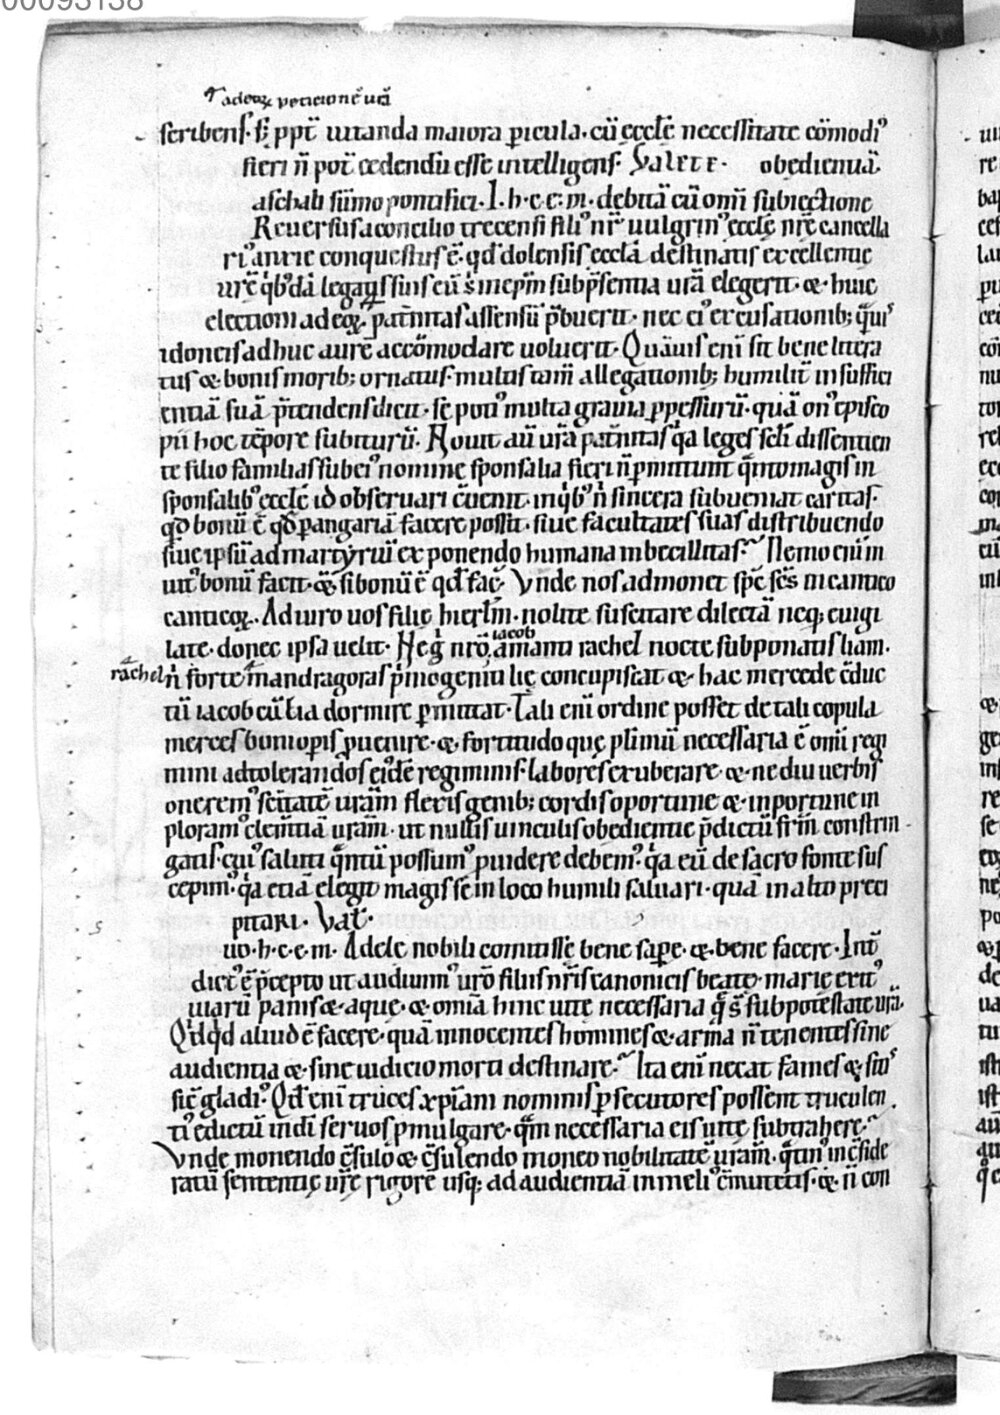 00093138
adeoꝝ peticionē urā
scribens· s; ppt̄ uitanda maiora ꝑicula· cū ęcclę necessitate cōmodi᾽
fieri n̄ pot̄ cedendū esse intelligens· Valete· obedientiā·
aschali sūmo pontifici· I· h· c· e· m· debitā cū omī subiectione
Reuersus a concilio trecensi fili᾽ nr̄ uulgrin᾽ ęcclę nr̄ę cancella
ri᾽ anxie conquestus ē· qđ dolensis ęcclā destinatis excellentię
electioni adeoꝝ p̄at̄nitas assensū p̄buerit· nec ei᾽ excusationib; q̄uis
idoneis adhuc aurē accōmodare uoluerit· Quāuis enī sit bene littera
tus & bonis morib; ornatus· multis tam̄ allegationib; humilit̄ insuffici
entiā suā p̄tendens dicit· sę poti᾽ multa grauia ꝑpessurū· quā on᾽ episco
pii hoc tēpore subiturū· Nouit aū urā pat̄nitas q̄a leges sc̄li dissentien
te filio familias sub ei᾽ nomine sponsalia fieri n̄ ꝑmittunt q̄nto magis in
sponsalib᾽ ęcclę id obseruari c̄uenit· in q̄b᾽ n̄ sincera subueniat caritas·
qđ bonū ē qđ ꝑ angariā facere possit· siue facultates suas distribuendo
siue ipsū ad martyriū exponendo humana inbecillitas· Nemo enī in
uit᾽ bonū facit· &si bonū ē qđ fac̄· Vnde nos admonet sp̄c sc̄s in cantico
canticoꝝ· Adiuro uos filię hierlm̄· nolite suscitare dilectā neq; euigi
late· donec ipsa uelit· Neq̄ nrō iacob amanti rachel nocte subponatis liam·
rachel n̄ forte mandragoras p̄mogeniti lię concupiscat & hac mercede c̄duc
tū iacob cū lia dormire ꝑmittat· Tali enī ordine posset de tali copula
merces boni oꝑis ꝓuenire· & fortitudo quę plimū necessaria ē omī regi
mini ad tolerandos eidē regiminis labores exuberare· & ne diu uerbis
onerem᾽ sc̄itatē urām flexis genib; cordis oportune & inportune in
ploram᾽ clem̄tiā urām· ut nullis uinculis obedientię p̄dictū frm̄ constrin
gatis· cui᾽ saluti q̄ntū possum᾽ ꝓuidere debem᾽· q̄a eū de sacro fonte sus
cepim᾽· q̄a etiā elegit magis se in loco humili saluari· quā in alto preci
pitari· Val̄·
uo· h· c· e· m· Adele nobili comitissę bene saꝑe· & bene facere· Int̄
dict᾽ ē p̄cepto ut audiuim᾽ uro filiis nr̄is canonicis beatę marię exit᾽
uiarū panis & aquę· & omīa hinc uite necessaria q̄ s̄ sub potestate urā·
Qid qđ aliud ē facere· quā innocentes homines & arma n̄ tenentes sine
audientia & sine iudicio morti destinare· Ita enī necat fames & sitis
sic̄ gladi᾽· Qđ enī truces xp̄iani nominis ꝑsecutores possent truculen
ti᾽ edictū in dī seruos ꝓmulgare· q̄m necessaria eis uitę subtrahere·
Vnde monendo c̄sulo & c̄sulendo moneo nobilitatē urām· q̄tin᾽ inc̄side
ratū sententię urę rigorē usq; ad audientiā in meli᾽ c̄mutetis· & n̄ con